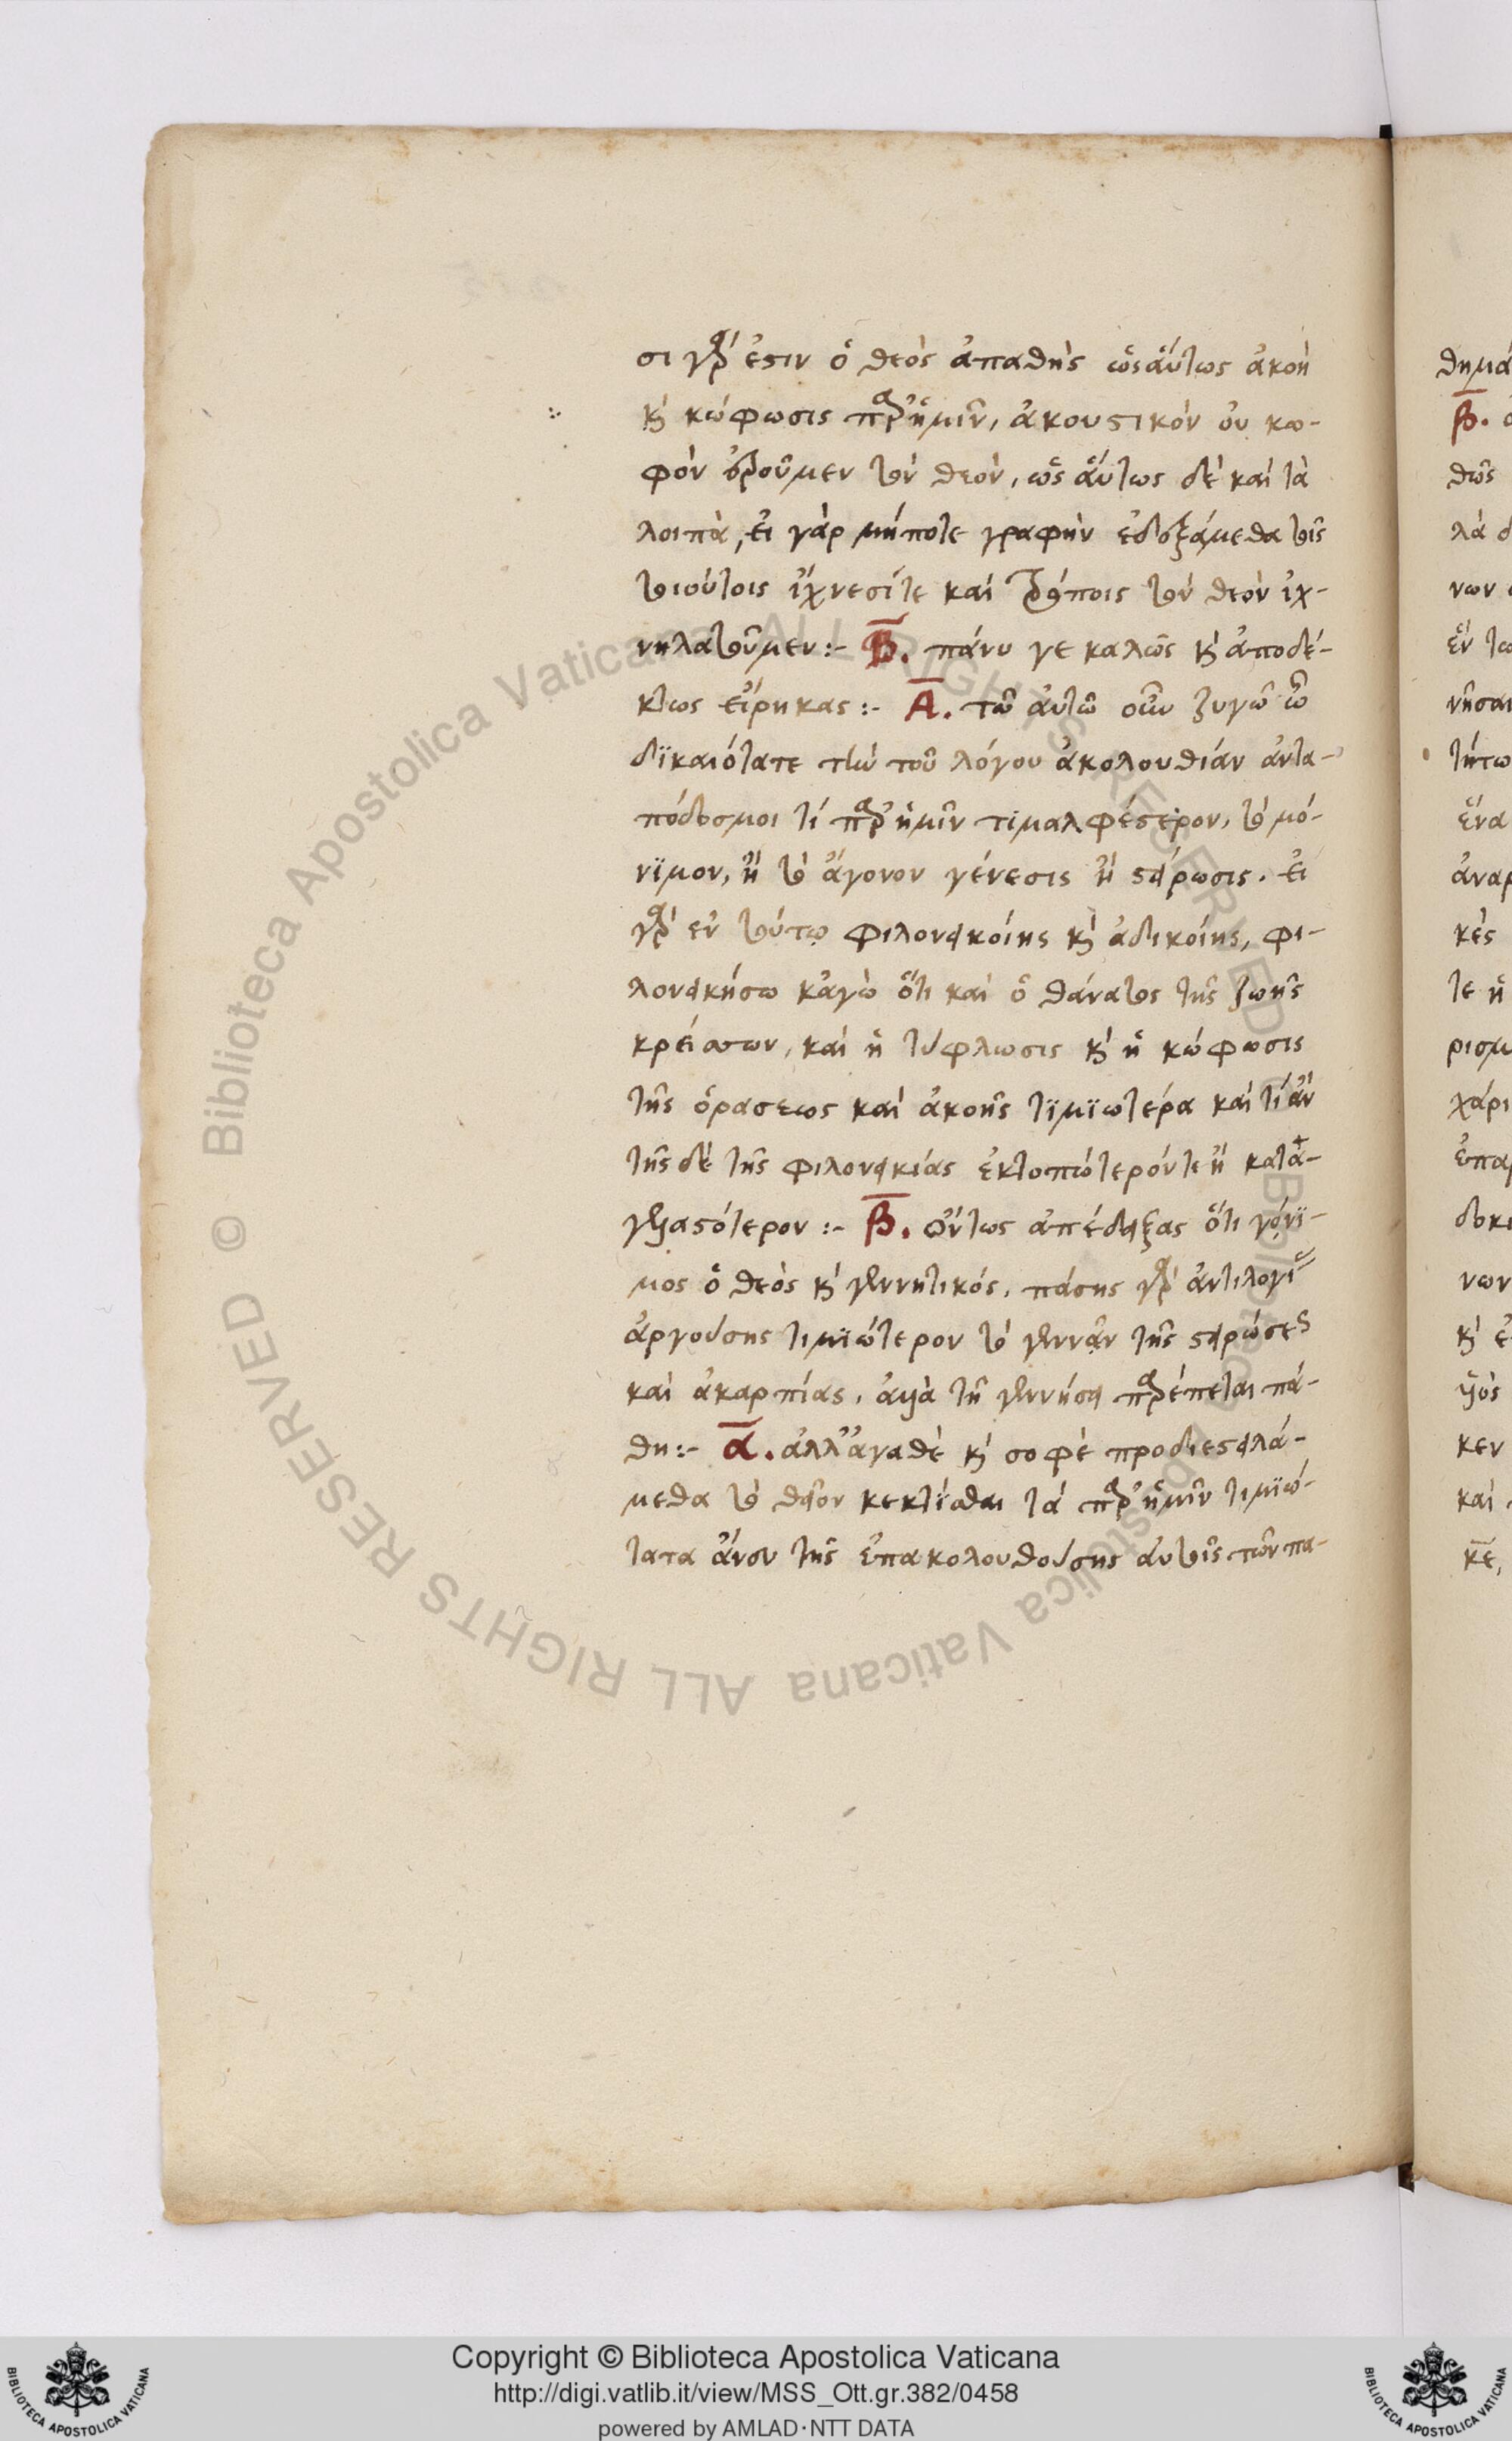 σι γάρ ἐστιν ὁ θεὸς ἀπαθὴς ὡσαύτως ἀκοὴ
καὶ κώφωσις παρ' ἡμῖν, ἀκουστικὸν οὐ κω-
φὸν ἐροῦμεν τὸν θεὸν, ὡσαύτως δὲ καὶ τὰ
λοιπὰ, εἰ γὰρ μήποτε γραφὴν ἐδοξάμεθα τοῖς
τοιούτοις ἴχνεσί τε καὶ τρόποις τὸν θεὸν ἰχ-
νηλατοῦμεν :- Β. πάνυ γε καλῶς καὶ ἀποδέ-
κτως εἴρηκας :- Α. τῷ αὐτῷ οὖν ζυγῷ ὦ
δϊκαιότατε τὴν τοῦ λόγου ἀκολουθίαν ἀντα-
πόδοσμοι τί παρ' ἡμῖν τιμαλφέστερον, τὸ μό-
νϊμον, ἢ τὸ ἄγονον γένεσις ἢ στείρωσις. εἰ
γὰρ ἐν τούτῳ φιλονεικοίης καὶ ἀδικοίης, φι-
λονεικήσω κἀγὼ ὅτι καὶ ὁ θάνατος τῆς ζωῆς
κρείσσων, καὶ ἡ τύφλωσις καὶ ἡ κώφωσις
τῆς ὁράσεως καὶ ἀκοῆς τϊμϊωτέρα καὶ τί ἂν
τῆσδε τῆς φιλονεικίας ἐκτοπώτερόν τε ἢ κατα-
γελαστότερον :- Β. ὄντως ἀπέδειξας ὅτι γόνϊ-
μος ὁ θεὸς καὶ γεννητικός, πάσης γὰρ ἀντιλογίας
ἀργούσης τιμϊώτερον τὸ γεννᾶν τῆς στειρώσεως
καὶ ἀκαρπίας, ἀλλὰ τῇ γεννήσει παρέπεται πά-
θη :- α. ἀλλ' ἀγαθὲ καὶ σοφὲ προδιεστειλά-
μεθα τὸ θεῖον κεκτῆσθαι τὰ παρ' ἡμῖν τιμϊώ-
τατα ἄνευ τῆς ἐπακολουθούσης αὐτοῖς τῶν πα-
Copyright © Biblioteca Apostolica Vaticana
http://digi.vatlib.it/view/MSS_Ott.gr.382/0458
powered by AMLAD·NTT DATA